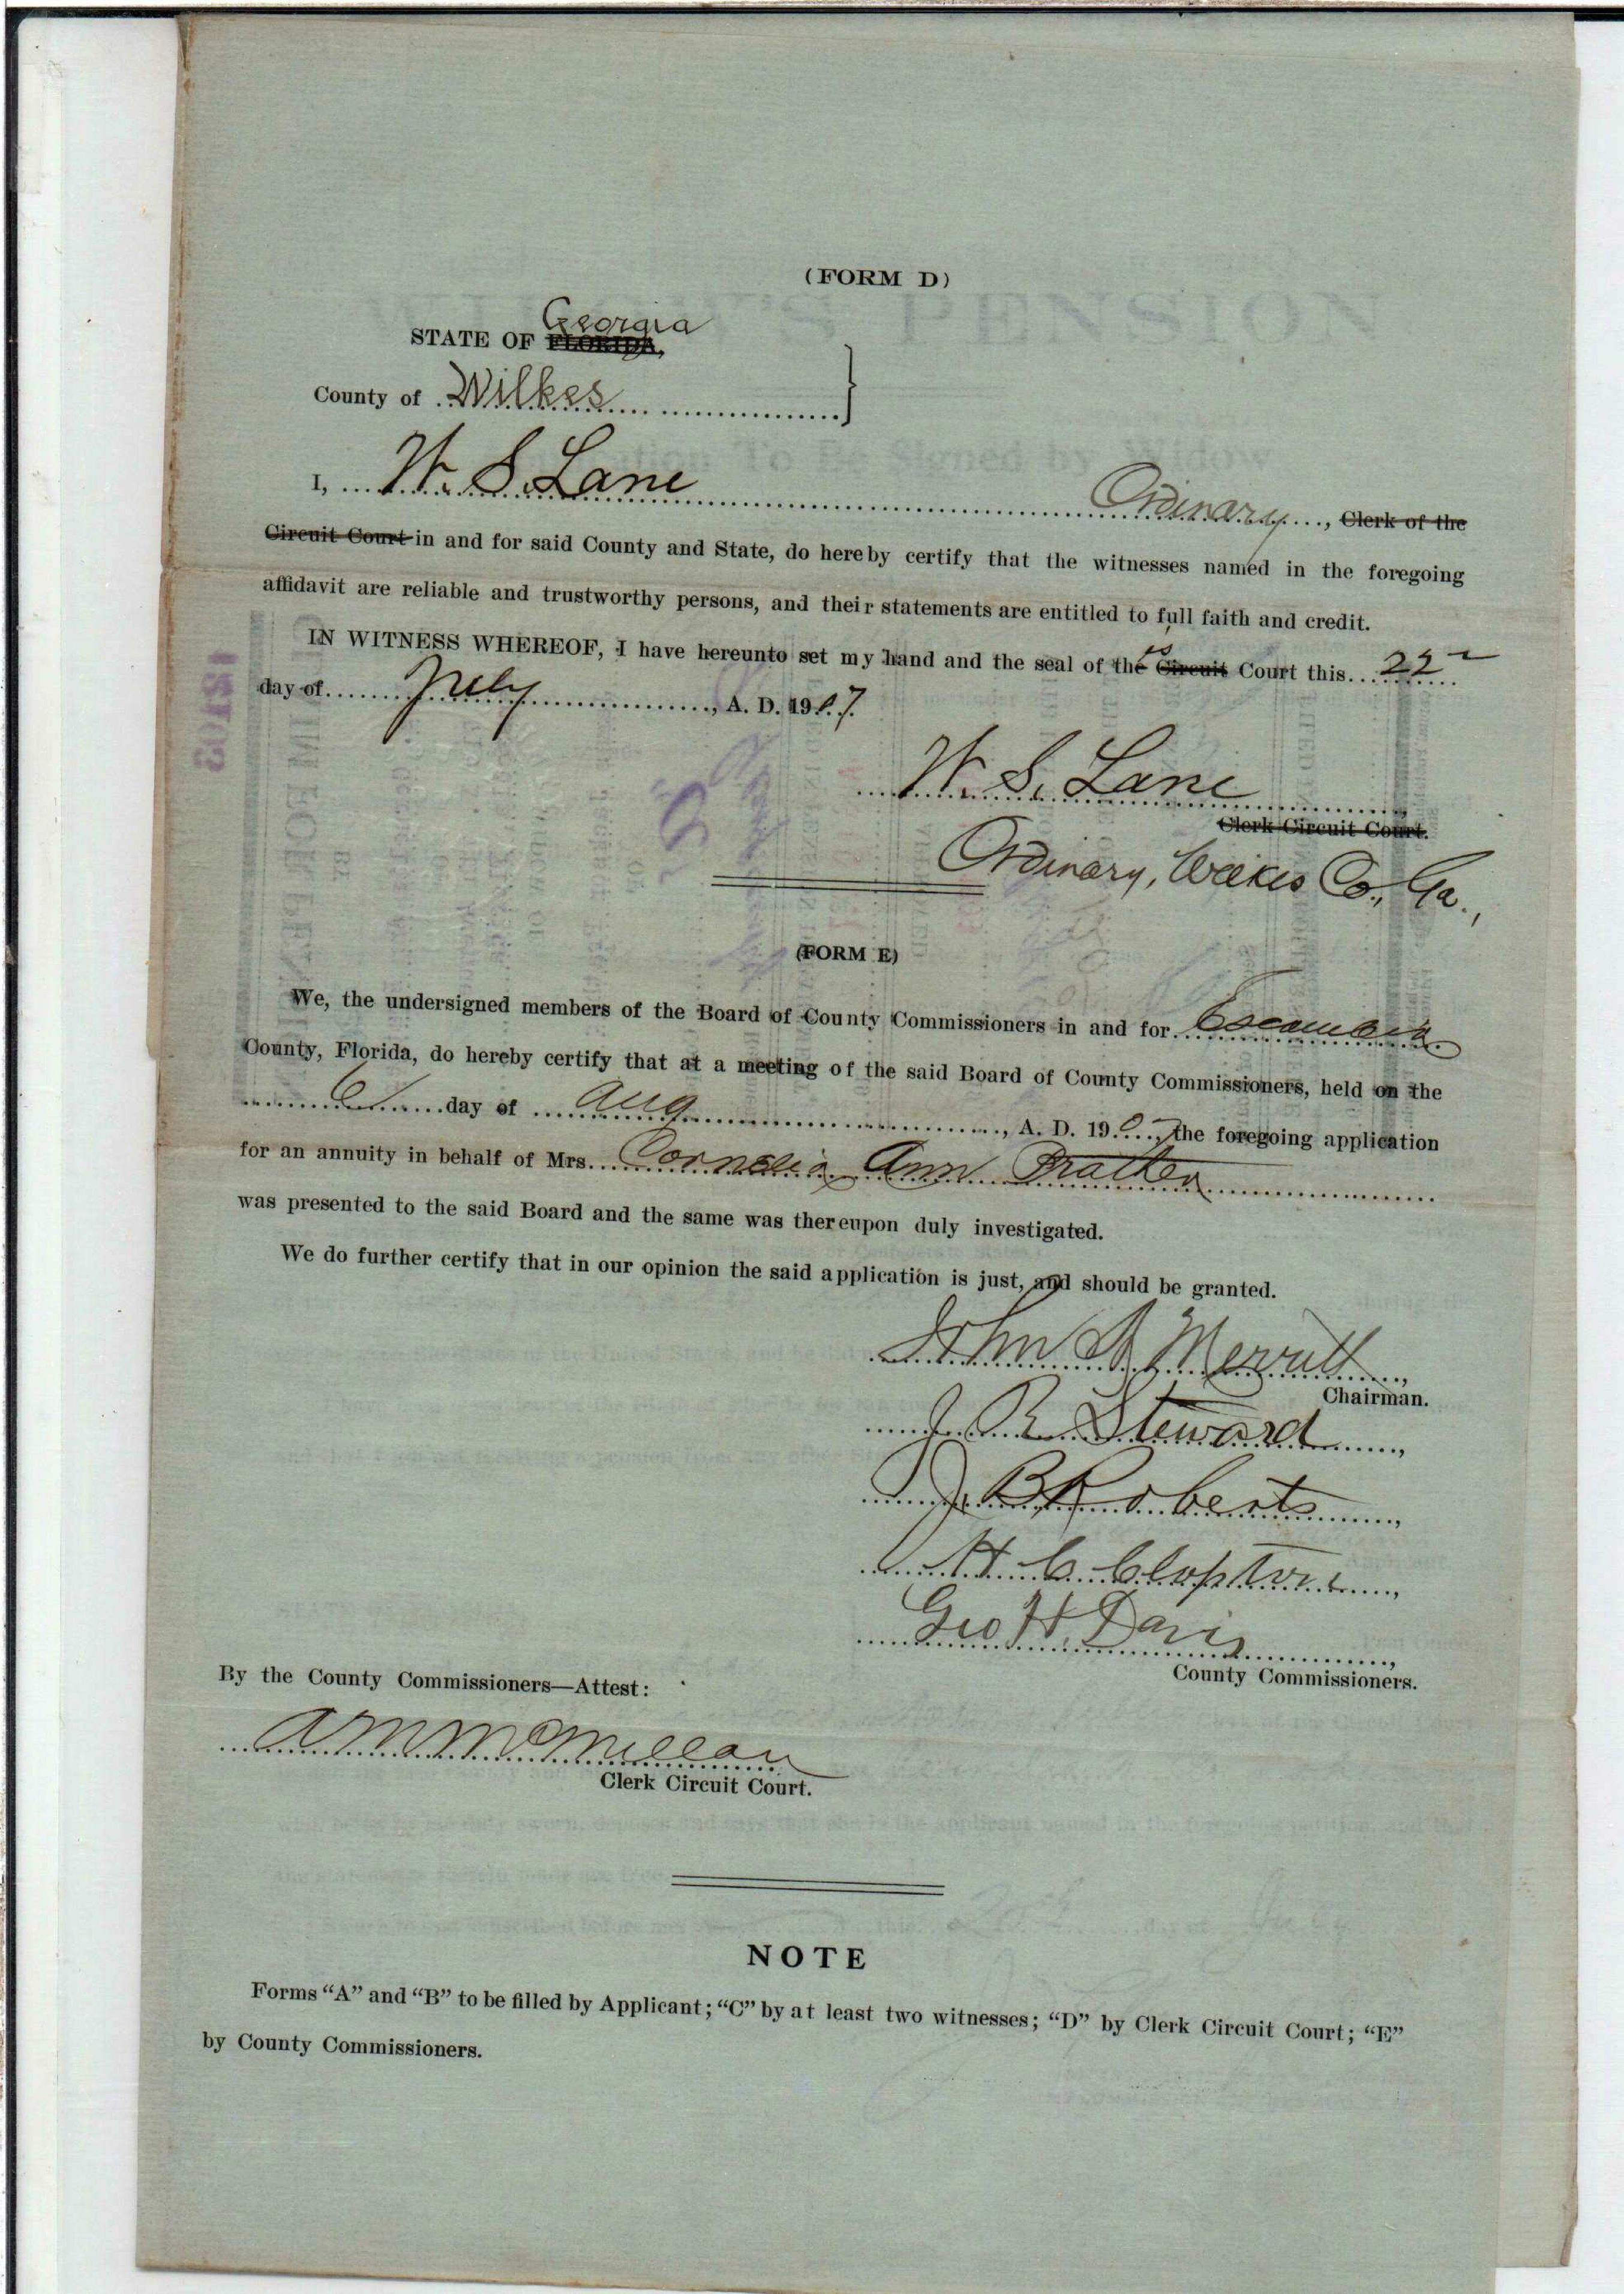 (FORM D)
Georgia
STATE OF FLORIDA,
County of Wilkes
I, W. S. Lane Ordinary, Clerk of the
Circuit Court in and for said County and State, do hereby certify that the witnesses named in the foregoing
affidavit are reliable and trustworthy persons, and their statements are entitled to full faith and credit.
IN WITNESS WHEREOF, I have hereunto set my hand and the seal of the Circuit Court this 22
day of July, A. D. 1907.
W. S. Lane
Clerk Circuit Court.
Ordinary, Wilkes Co., Ga.,
(FORM E)
We, the undersigned members of the Board of County Commissioners in and for Escambia
County, Florida, do hereby certify that at a meeting of the said Board of County Commissioners, held on the
6 day of Aug, A. D. 1907, the foregoing application
for an annuity in behalf of Mrs. Cornelia Ann Prather
was presented to the said Board and the same was thereupon duly investigated.
We do further certify that in our opinion the said application is just, and should be granted.
John S Merritt,
Chairman.
J. R. Steward,
J. B Roberts,
H C Clopton,
Geo H. Davis,
County Commissioners.
By the County Commissioners—Attest:
A M McMillan
Clerk Circuit Court.
NOTE
Forms "A" and "B" to be filled by Applicant; "C" by at least two witnesses; "D" by Clerk Circuit Court; "E"
by County Commissioners.